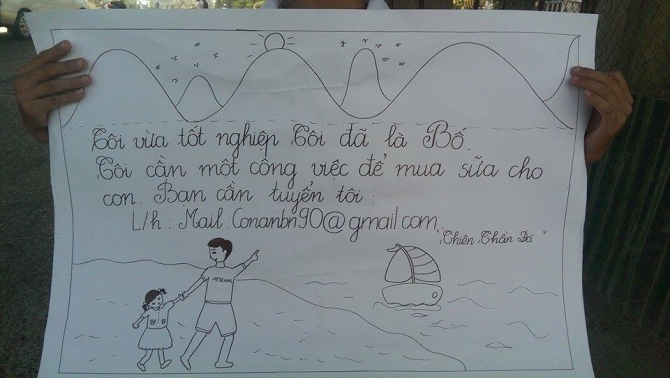 Tôi vừa tốt nghiệp Tôi đã là Bố.
Tôi cần một công việc để mua sữa cho
con. Bạn cần tuyển tôi.
L/h: Mail: Conanbn90@gmail.com.
"Thiên Thần Đá"
ARSENAL